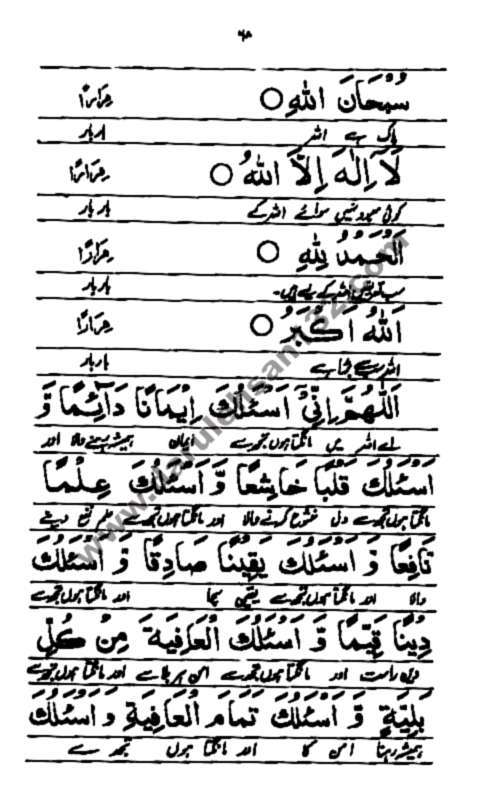 ٦٨
سُبْحَانَ اللّٰهِ ○ مِرَارًا
پاک ہے اللہ بار بار
لَا اِلٰهَ اِلَّا اللّٰهُ ○ مِرَارًا
کوئی معبود نہیں سوائے اللہ کے بار بار
اَلْحَمْدُ لِلّٰهِ ○ مِرَارًا
سب تعریفیں اللہ کے لیے ہیں۔ بار بار
اَللّٰهُ اَكْبَرُ ○ مِرَارًا
اللہ سب سے بڑا ہے بار بار
اَللّٰهُمَّ اِنِّىْ اَسْئَلُكَ اِيْمَانًا دَآئِمًا وَّ
اے اللہ میں مانگتا ہوں تجھ سے ایمان ہمیشہ رہنے والا اور
اَسْئَلُكَ قَلْبًا خَاشِعًا وَّ اَسْئَلُكَ عِلْمًا
مانگتا ہوں تجھ سے دل خشوع کرنے والا اور مانگتا ہوں تجھ سے علم نفع دینے
نَافِعًا وَّ اَسْئَلُكَ يَقِيْنًا صَادِقًا وَّ اَسْئَلُكَ
والا اور مانگتا ہوں تجھ سے یقین سچا اور مانگتا ہوں تجھ سے
دِيْنًا قَيِّمًا وَّ اَسْئَلُكَ الْعَافِيَةَ مِنْ كُلِّ
دین راست اور مانگتا ہوں تجھ سے امن ہر بلا سے اور مانگتا ہوں تجھ سے
بَلِيَّةٍ وَّ اَسْئَلُكَ تَمَامَ الْعَافِيَةِ وَ اَسْئَلُكَ
ہمیشہ رہنا امن کا اور مانگتا ہوں تجھ سے